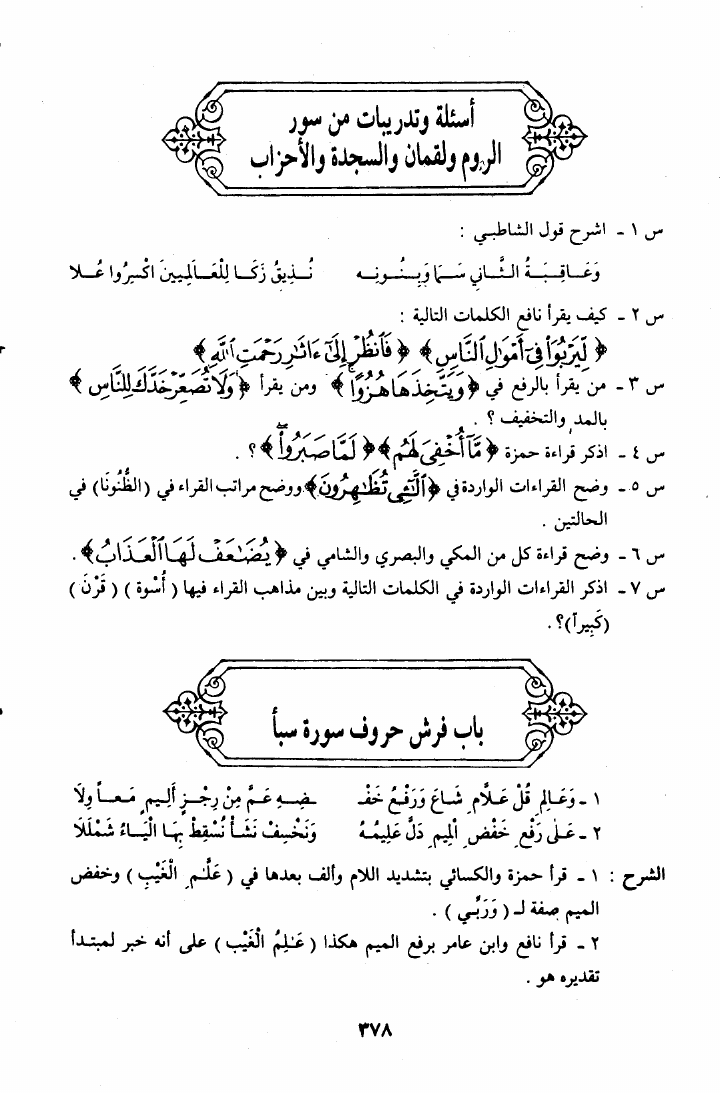 أسئلة وتدريبات من سور
الروم ولقمان والسجدة والأحزاب
س ١ - اشرح قول الشاطبي :
وَعَـاقِـبَـةُ الـثَّـانِي سَـمَا وَبِـنُـونِـه نُـذِيقُ زَكَـا لِلْعَـالَمِيـنَ اكْسِرُوا عُـلا
س ٢ - كيف يقرأ نافع الكلمات التالية :
﴿ لِّيَرْبُوَا۟ فِىٓ أَمْوَٰلِ ٱلنَّاسِ ﴾ ﴿ فَٱنظُرْ إِلَىٰٓ ءَاثَٰرِ رَحْمَتِ ٱللَّهِ ﴾
س ٣ - من يقرأ بالرفع في ﴿ وَيَتَّخِذَهَا هُزُوًا ﴾ ومن يقرأ ﴿ وَلَا تُصَعِّرْ خَدَّكَ لِلنَّاسِ ﴾
بالمد والتخفيف ؟ .
س ٤ - اذكر قراءة حمزة ﴿ مَّآ أُخْفِىَ لَهُم ﴾ ﴿ لَمَّا صَبَرُوا۟ ﴾ ؟ .
س ٥ - وضح القراءات الواردة في ﴿ ٱلَّٰٓـِٔى تُظَٰهِرُونَ ﴾ ووضح مراتب القراء في (الظُّنُونَا) في
الحالتين .
س ٦ - وضح قراءة كل من المكي والبصري والشامي في ﴿ يُضَٰعَفْ لَهَا ٱلْعَذَابُ ﴾ .
س ٧ - اذكر القراءات الواردة في الكلمات التالية وبين مذاهب القراء فيها ( أُسْوة ) ( قَرْنَ )
(كَبِيراً) ؟ .
باب فرش حروف سورة سبأ
١ - وَعَـالِمِ قُلْ عَـلَّامِ شَـاعَ وَرَفْـعُ خَفْـ ـضِـهِ عَـمَّ مِنْ رِجْـزٍ أَلِيـمٍ مَـعـاً وِلَا
٢ - عَـلَى رَفْعِ خَفْضِ الْمِيمِ دَلَّ عَلِيمُـهُ وَنَخْسِفْ نَشَـأْ نُسْقِطْ بِهَا الْيَـاءُ شَمْلَلَا
الشرح : ١ - قرأ حمزة والكسائي بتشديد اللام وألف بعدها في ( عَلَّٰمِ الْغَيْبِ ) وخفض
الميم صفة لـ ( وَرَبِّـي ) .
٢ - قرأ نافع وابن عامر برفع الميم هكذا ( عَٰلِمُ الْغَيْب ) على أنه خبر لمبتـدأ
تقديره هو .
٣٧٨